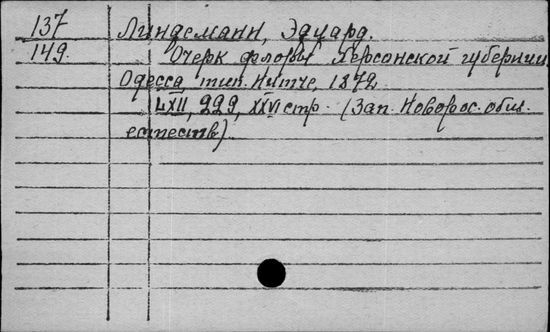 137 Линдеманн, Эдуард.
149. Очерк флоры Херсонской губернии
Одесса, тип. Нитче, 1872.
LXII, 229, XXVI стр. (Зап. Новорос. общ.
естеств).